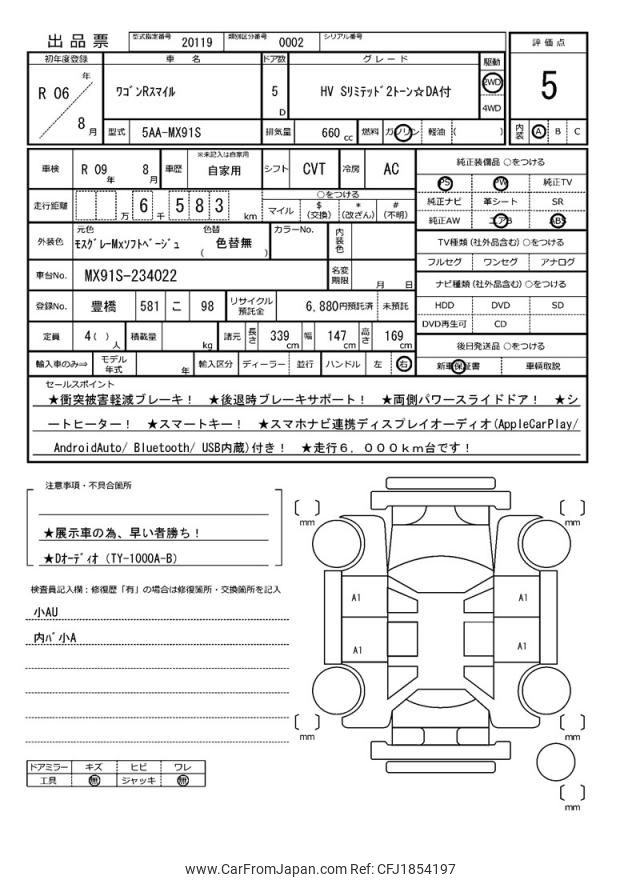 出品票 型式指定番号 20119 類別区分番号 0002 シリアル番号
初年度登録 車名 ドア数 グレード 駆動 評価点
R 06 年 8 月 ワゴンRスマイル 5 D HV Sリミテッド2トーン☆DA付 2WD 4WD 5
型式 5AA-MX91S 排気量 660 cc 燃料 ガソリン 軽油 ( ) 内装 A B C
車検 R 09 年 8 月 車歴 ※未記入は自家用 自家用 シフト CVT 冷房 AC 純正装備品 ○をつける
PS PW 純正TV
走行距離 万 6 千 5 8 3 km ○をつける
マイル $ (交換) * (改ざん) # (不明)
純正ナビ 革シート SR
純正AW エアB ABS
外装色 元色 モスグレーMxソフトベージュ 色替 ( 色替無 ) カラーNo. 内装色
TV種類(社外品含む) ○をつける
フルセグ ワンセグ アナログ
車台No. MX91S-234022 名変期限 月 日
ナビ種類(社外品含む) ○をつける
登録No. 豊橋 581 こ 98 リサイクル預託金 6,880円預託済 未預託
HDD DVD SD
DVD再生可 CD
定員 4( ) 人 積載量 kg 諸元 長さ 339 cm 幅 147 cm 高さ 169 cm
後日発送品 ○をつける
輸入車のみ⇒ モデル年式 年 輸入区分 ディーラー 並行 ハンドル 左 右
新車保証書 車輌取説
セールスポイント
★衝突被害軽減ブレーキ! ★後退時ブレーキサポート! ★両側パワースライドドア! ★シ
ートヒーター! ★スマートキー! ★スマホナビ連携ディスプレイオーディオ(AppleCarPlay/
AndroidAuto/ Bluetooth/ USB内蔵)付き! ★走行6,000km台です!
注意事項・不具合箇所
★展示車の為、早い者勝ち!
★Dオーディオ (TY-1000A-B)
検査員記入欄:修復歴「有」の場合は修復箇所・交換箇所を記入
小AU
内バ小A
ドアミラー キズ ヒビ ワレ
工具 無 ジャッキ 無
[ ] mm
[ ] mm
A1
A1
A1
A1
[ ] mm
[ ] mm
[ ] mm
www.CarFromJapan.com Ref: CFJ1854197